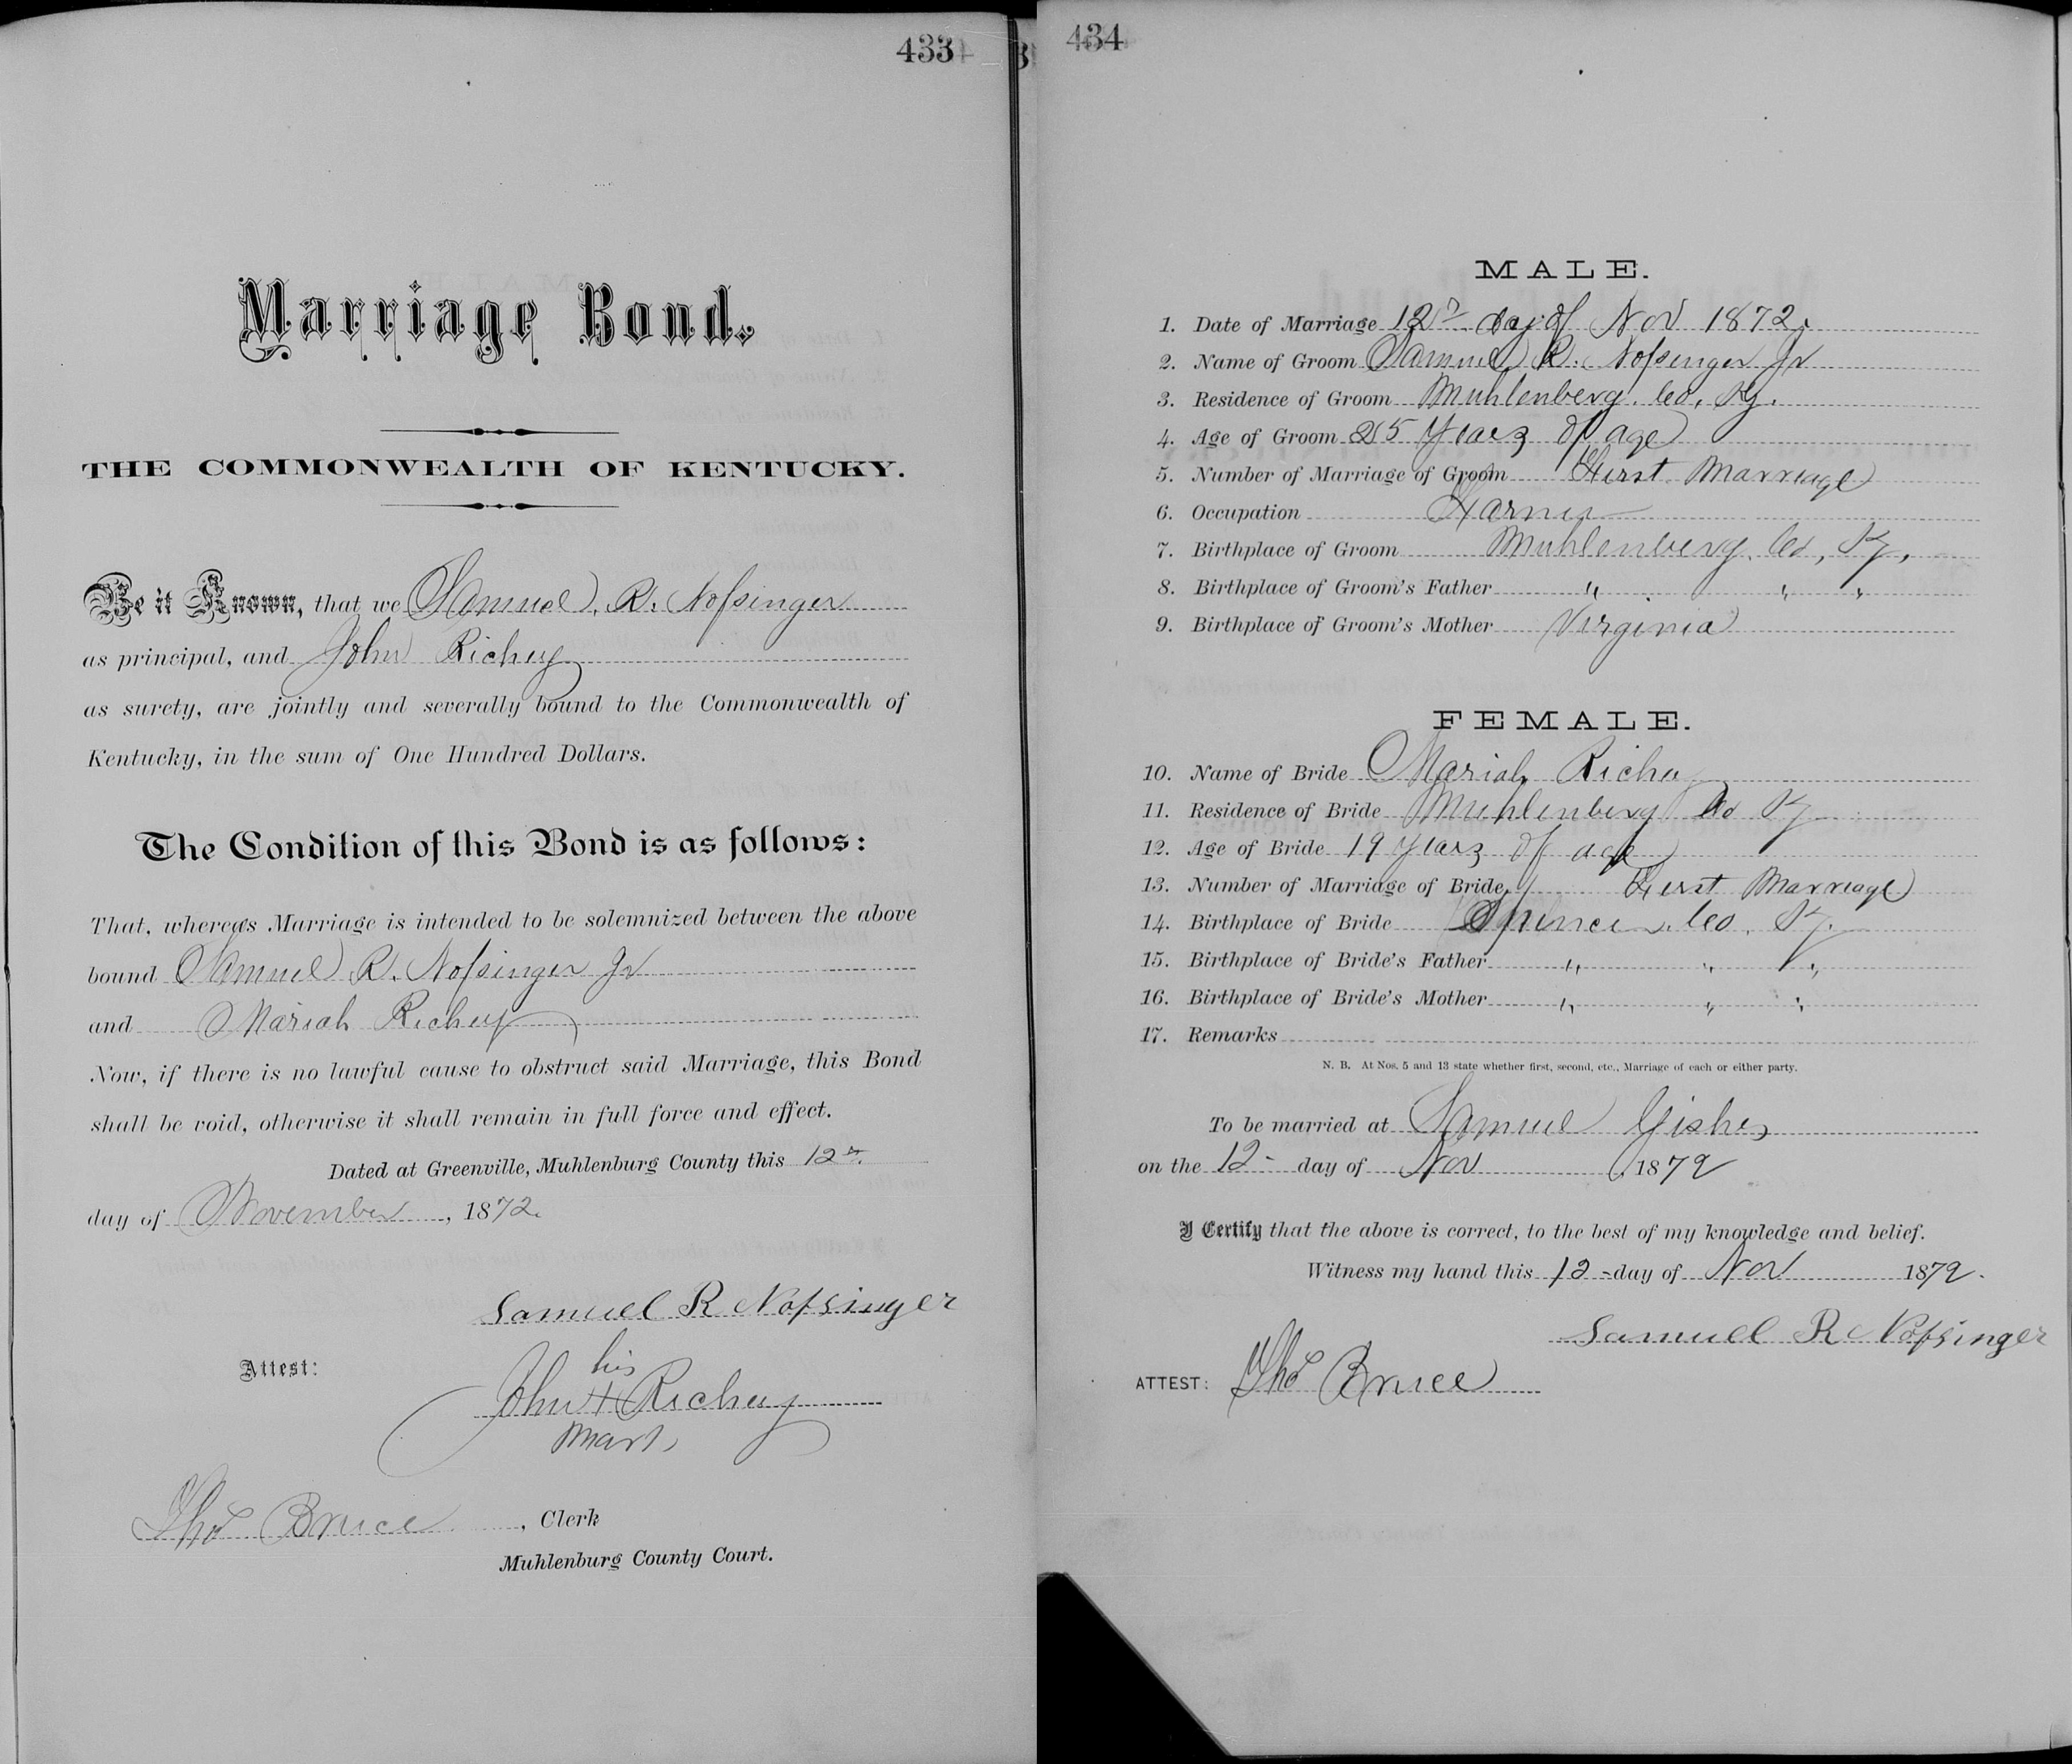 433
Marriage Bond.
THE COMMONWEALTH OF KENTUCKY.
Be it Known, that we Samuel R. Nofsinger
as principal, and John Richey
as surety, are jointly and severally bound to the Commonwealth of
Kentucky, in the sum of One Hundred Dollars.
The Condition of this Bond is as follows:
That, whereas Marriage is intended to be solemnized between the above
bound Samuel R. Nofsinger Jr
and Mariah Richey
Now, if there is no lawful cause to obstruct said Marriage, this Bond
shall be void, otherwise it shall remain in full force and effect.
Dated at Greenville, Muhlenburg County this 12th
day of November, 1872.
Samuel R Nofsinger
Attest:
his
John + Richey
Mark
Thos Bruce, Clerk
Muhlenburg County Court.
434
MALE.
1. Date of Marriage 12th day of Nov 1872.
2. Name of Groom Samuel R. Nofsinger Jr
3. Residence of Groom Muhlenberg. Co, Ky.
4. Age of Groom 25 Years of age
5. Number of Marriage of Groom First Marriage
6. Occupation Farmer
7. Birthplace of Groom Muhlenberg. Co, Ky,
8. Birthplace of Groom's Father " " "
9. Birthplace of Groom's Mother Virginia
FEMALE.
10. Name of Bride Mariah Richey
11. Residence of Bride Muhlenberg Co Ky
12. Age of Bride 19 years of age
13. Number of Marriage of Bride First Marriage
14. Birthplace of Bride Spencer. Co. Ky.
15. Birthplace of Bride's Father " " "
16. Birthplace of Bride's Mother " " "
17. Remarks
N. B. At Nos. 5 and 13 state whether first, second, etc., Marriage of each or either party.
To be married at Samuel Gishes
on the 12 - day of Nov 1872
I Certify that the above is correct, to the best of my knowledge and belief.
Witness my hand this 12 - day of Nov 1872.
Samuel R Nofsinger
ATTEST: Thos Bruce